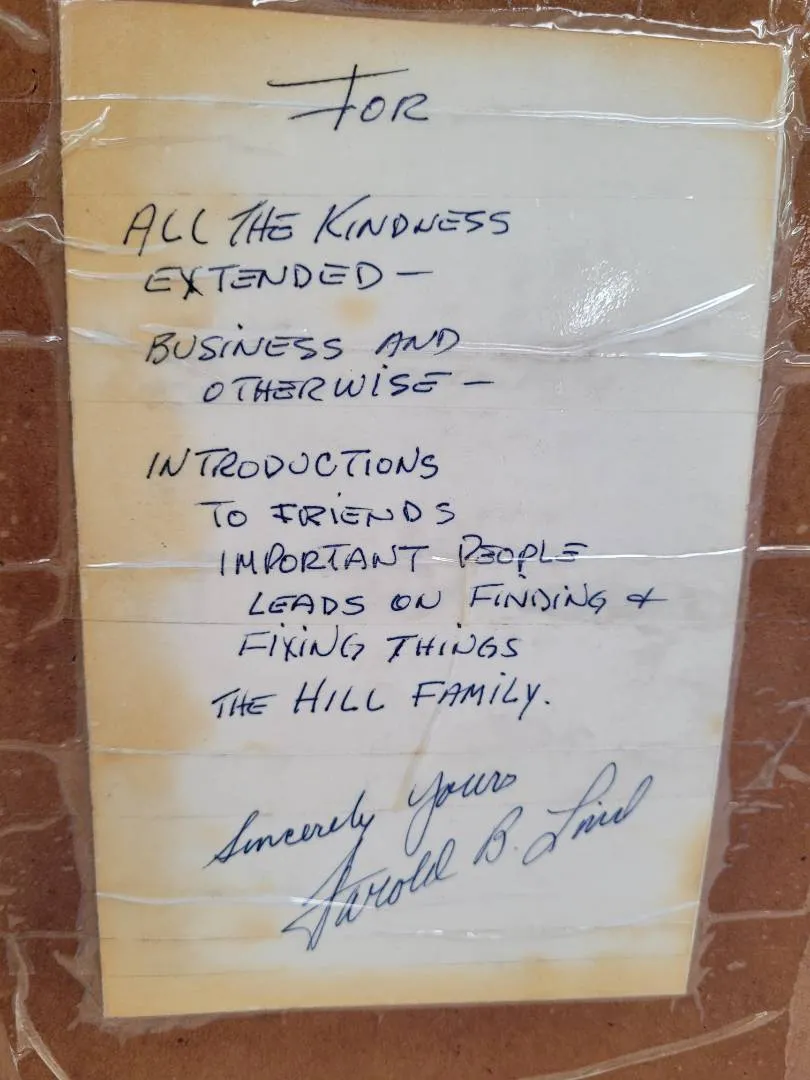 FOR
ALL THE KINDNESS
EXTENDED —
BUSINESS AND
OTHERWISE —
INTRODUCTIONS
TO FRIENDS
IMPORTANT PEOPLE
LEADS ON FINDING &
FIXING THINGS
THE HILL FAMILY.
Sincerely Yours
Harold B. Lind